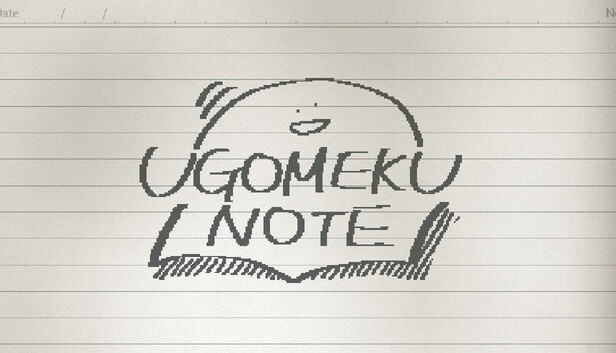 Date / /
UGOMEKU
NOTE